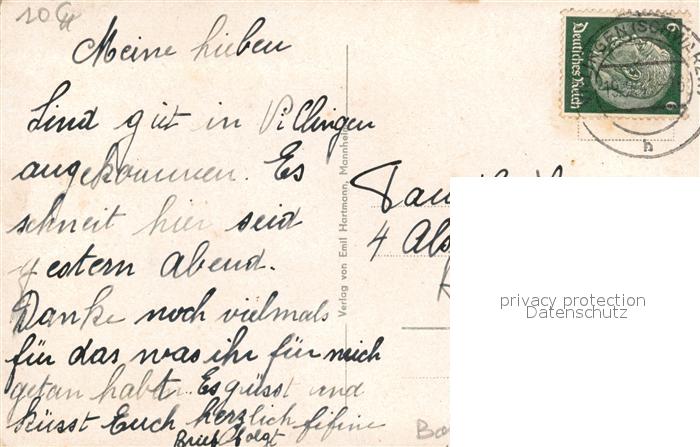 10 G
Meine lieben
Sind gut in Villingen
angekommen. Es
schneit hier seid
gestern Abend.
Danke noch vielmals
für das was ihr für mich
getan habt. Es grüsst und
küsst Euch herzlich fifine
Brief folgt
Verlag von Emil Hartmann, Mannheim
Deutsches Reich
6 6
h
4 Als
privacy protection
Datenschutz